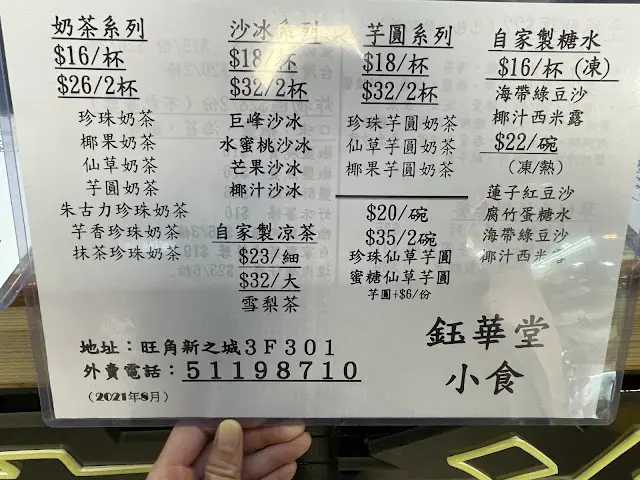 奶茶系列
$16/杯
$26/2杯
珍珠奶茶
椰果奶茶
仙草奶茶
芋圓奶茶
朱古力珍珠奶茶
芋香珍珠奶茶
抹茶珍珠奶茶
沙冰系列
$18/杯
$32/2杯
巨峰沙冰
水蜜桃沙冰
芒果沙冰
椰汁沙冰
自家製凉茶
$23/細
$32/大
雪梨茶
芋圓系列
$18/杯
$32/2杯
珍珠芋圓奶茶
仙草芋圓奶茶
椰果芋圓奶茶
$20/碗
$35/2碗
珍珠仙草芋圓
蜜糖仙草芋圓
芋圓+$6/份
自家製糖水
$16/杯(凍)
海帶綠豆沙
椰汁西米露
$22/碗
(凍/熱)
蓮子紅豆沙
腐竹蛋糖水
海帶綠豆沙
椰汁西米露
地址：旺角新之城3F301
外賣電話：51198710
(2021年8月)
鈺華堂
小食